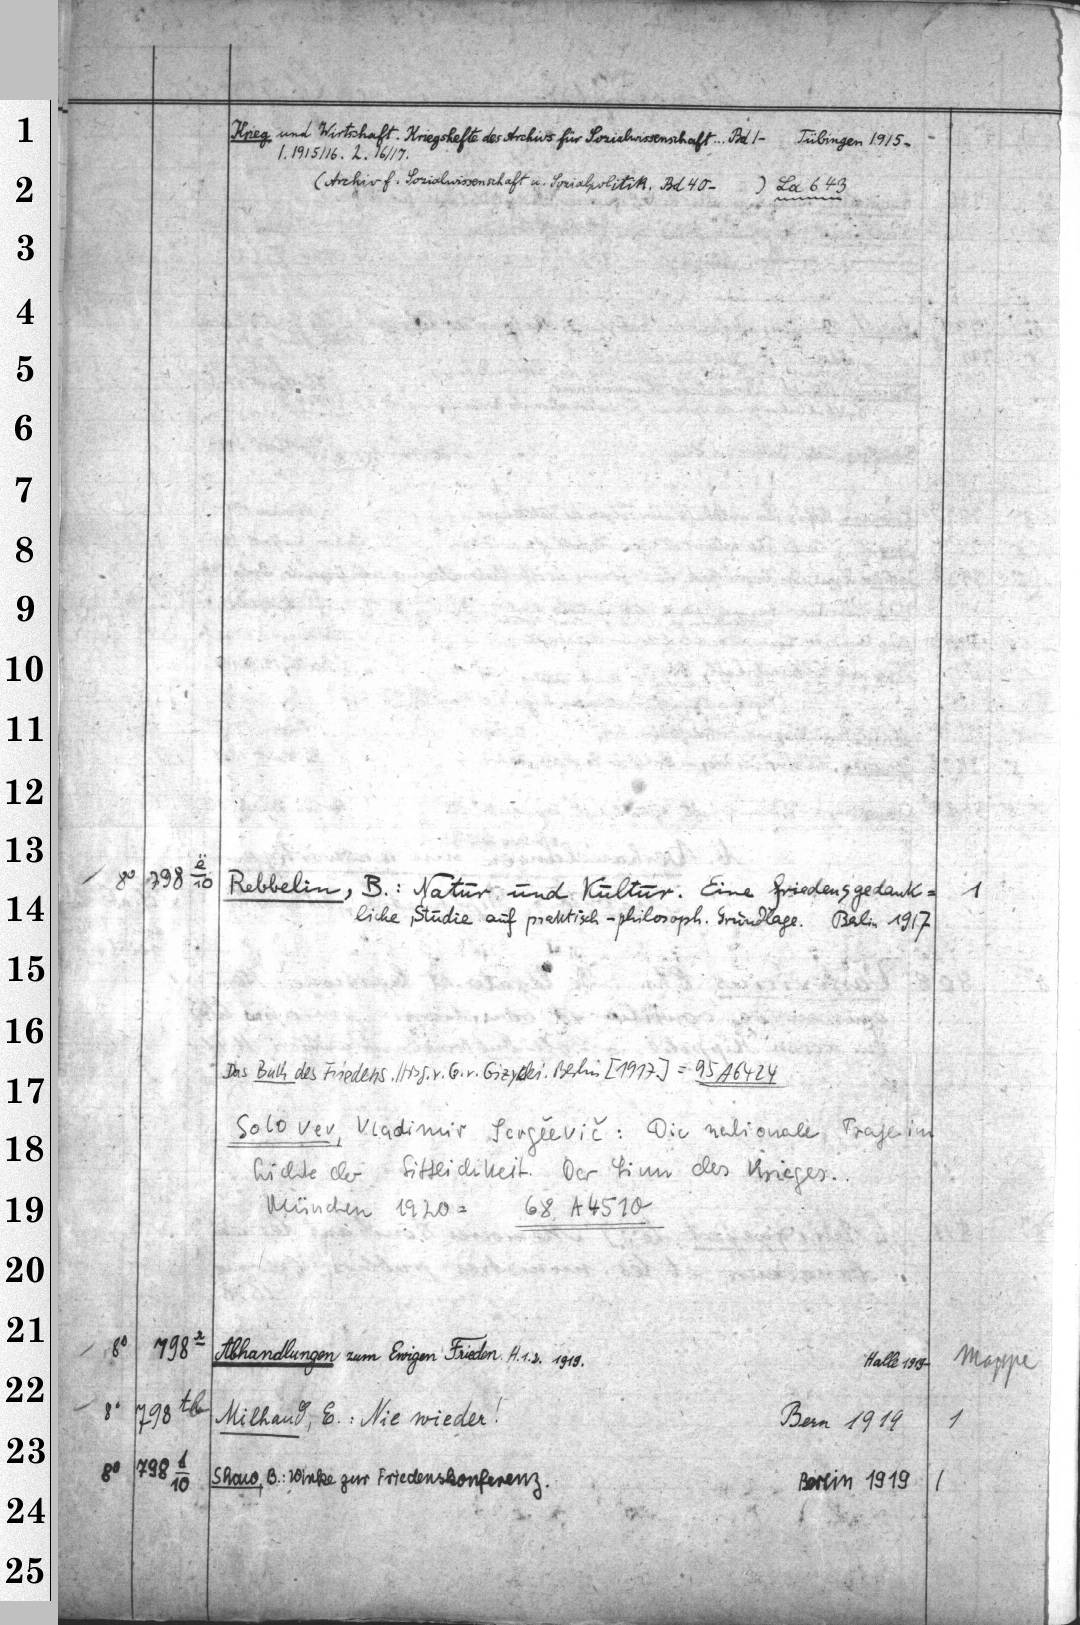 1
Krieg und Wirtschaft. Kriegshefte des Archivs für Sozialwissenschaft... Bd 1- Tübingen 1915-
1. 1915/16. 2. 16/17.
2
(Archiv f. Sozialwissenschaft u. Sozialpolitik. Bd 40- ) La 643
3
4
5
6
7
8
9
10
11
12
13
8° 798 ë/10 Rebbelin, B.: Natur und Kultur. Eine friedensgedank= 1
14
liche Studie auf praktisch-philosoph. Grundlage. Berlin 1917
15
16
Das Buch des Friedens. Hrsg. v. G. v. Gizycki. Berlin [1917] = 95 A6424
17
Solovev, Vladimir Sergěevič: Die nationale Frage im
18
Lichte der Sittlichkeit. Der Sinn des Krieges.
19
München 1920 = 68 A 4510
20
21
8° 798 Abhandlungen zum Ewigen Frieden. H. 1.2. 1919. Halle 1919 Mappe
22
8° 798 Milhaud, E.: Nie wieder! Bern 1919 1
23
8° 798 1/10 Shaw, B.: Winke zur Friedenskonferenz. Berlin 1919 1
24
25